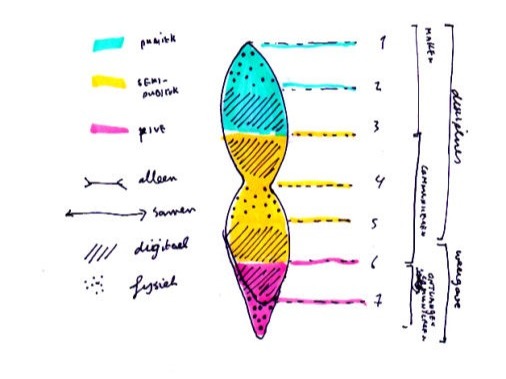 publiek
SEMI-
PUBLIEK
PRIVE
alleen
samen
digitaal
fysiek
1
2
3
4
5
6
7
MAKEN
COMMUNICEREN
disciplines
weergave